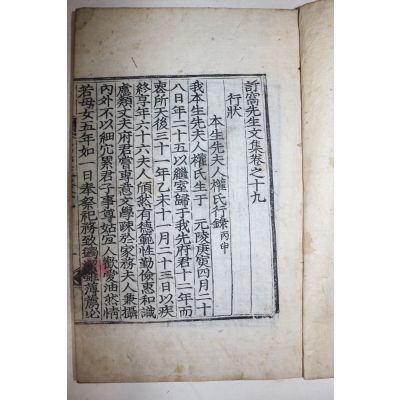 訂窩先生文集卷之十九
行狀
本生先夫人權氏行錄 丙申
我本生先夫人權氏生于 元陵庚寅四月二十
八日年二十五以繼室歸于我先府君十二年而
喪所天後三十一年乙未十一月二十三日以疾
終享年六十六夫人頎然有德範性勤儉惠和識
慮類丈夫府君嘗專意文學疎於家務夫人兼攝
內外不以細宂累君子事尊姑宜人歡愛油然情
若母女五年如一日奉祭祀務致蠲潔雖薄薦必